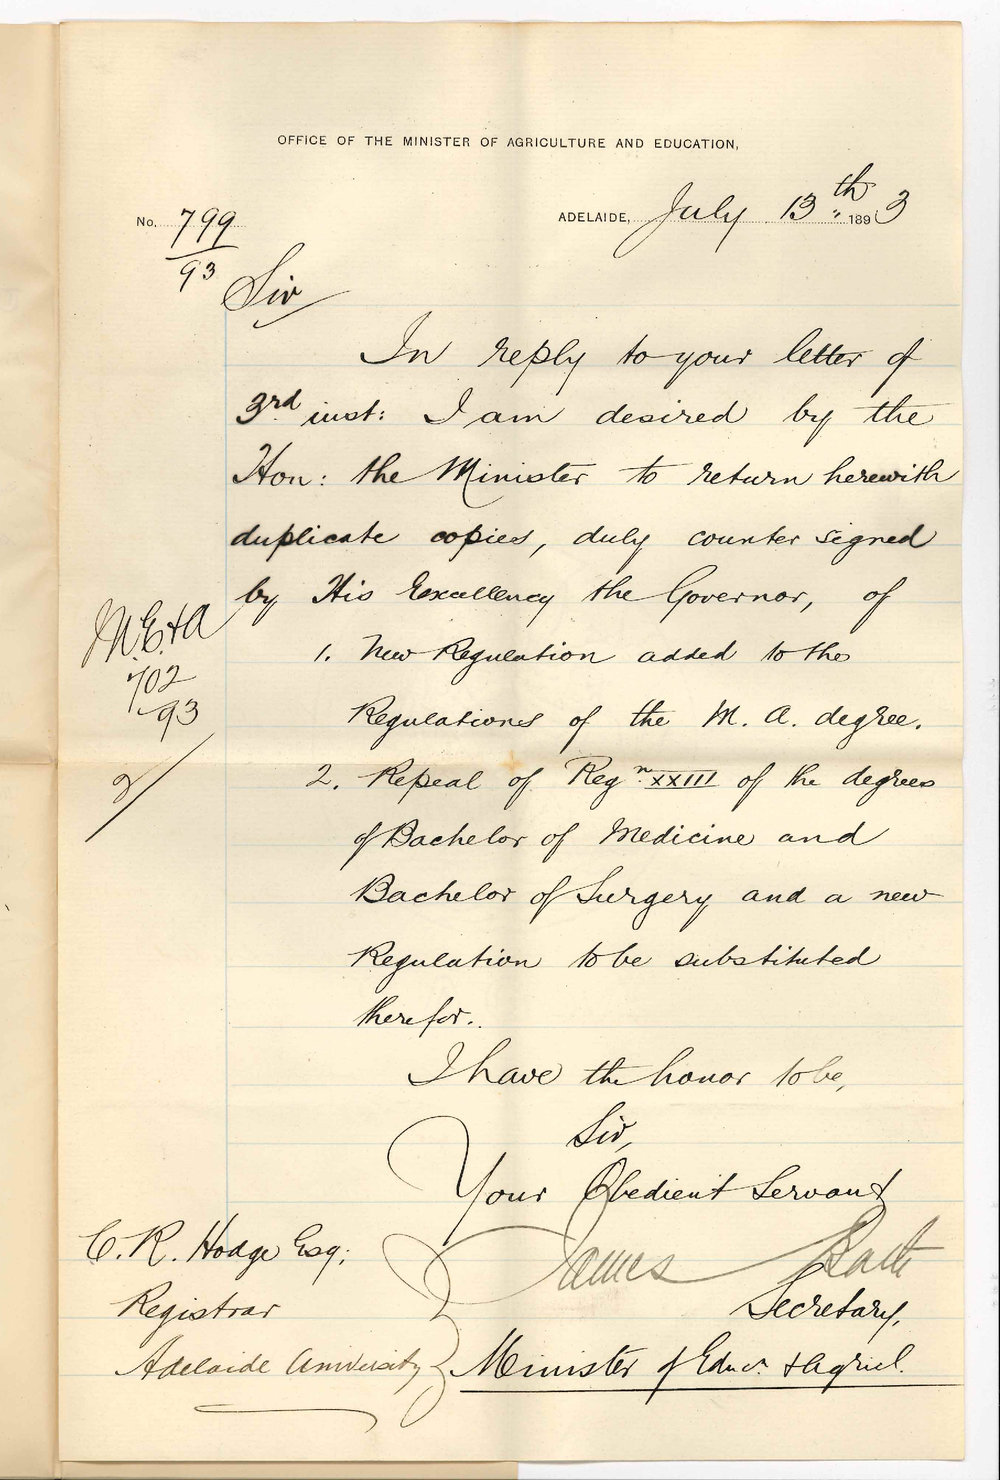 OFFICE OF THE MINISTER OF AGRICULTURE AND EDUCATION,
ADELAIDE, July 13th 1893
No. 799
93
Sir
In reply to your letter of
3rd inst: I am desired by the
Hon: the Minister to return herewith
duplicate copies, duly counter signed
by His Excellency the Governor, of
M.E.&A
702
93
2/
1. New Regulation added to the
Regulations of the M. A. degree.
2. Repeal of Regn. XXIII of the degrees
of Bachelor of Medicine and
Bachelor of Surgery and a new
Regulation to be substituted
therefor.
I have the honor to be,
Sir,
Your Obedient Servant
James Bath
Secretary,
Minister of Educn. & Agricl.
C. R. Hodge Esq;
Registrar
Adelaide University